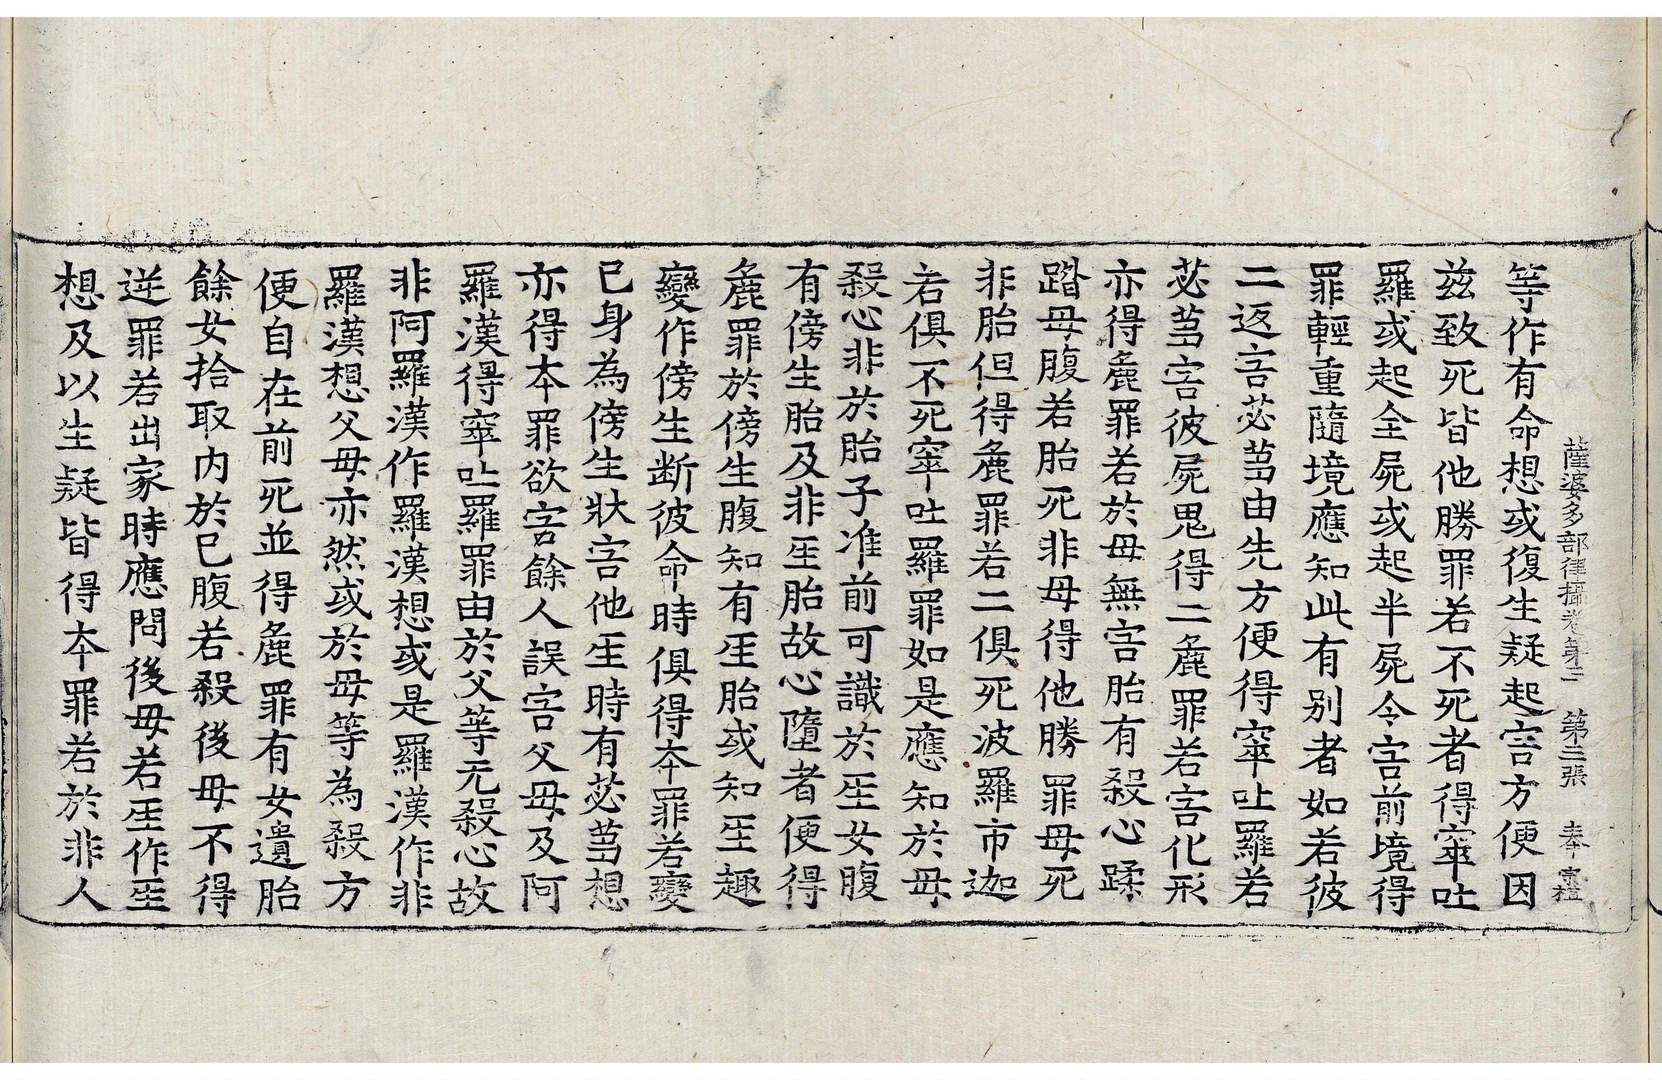 薩婆多部律攝卷第三 第三張 奉
等作有命想或復生疑起害方便因
兹致死皆他勝罪若不死者得窣吐
羅或起全屍或起半屍令害前境得
罪輕重隨境應知此有別者如若彼
二返害苾蒭由先方便得窣吐羅若
苾蒭害彼屍鬼得二麁罪若害化形
亦得麁罪若於母無害胎有殺心蹂
蹋母腹若胎死非母得他勝罪母死
非胎但得麁罪若二俱死波羅市迦
若俱不死窣吐羅罪如是應知於母
殺心非於胎子准前可識於𤯝女腹
有傍生胎及非𤯝胎故心墮者便得
麁罪於傍生腹知有𤯝胎或知𤯝趣
變作傍生断彼命時俱得夲罪若變
已身為傍生狀害他𤯝時有苾蒭想
亦得夲罪欲害餘人誤害父母及阿
羅漢得窣吐羅罪由於父等无殺心故
非阿羅漢作羅漢想或是羅漢作非
羅漢想父母亦然或於母等為殺方
便自在前死並得麁罪有女遺胎
餘女拾取内於已腹若殺後母不得
逆罪若出家時應問後母若𤯝作𤯝
想及以生疑皆得夲罪若於非人